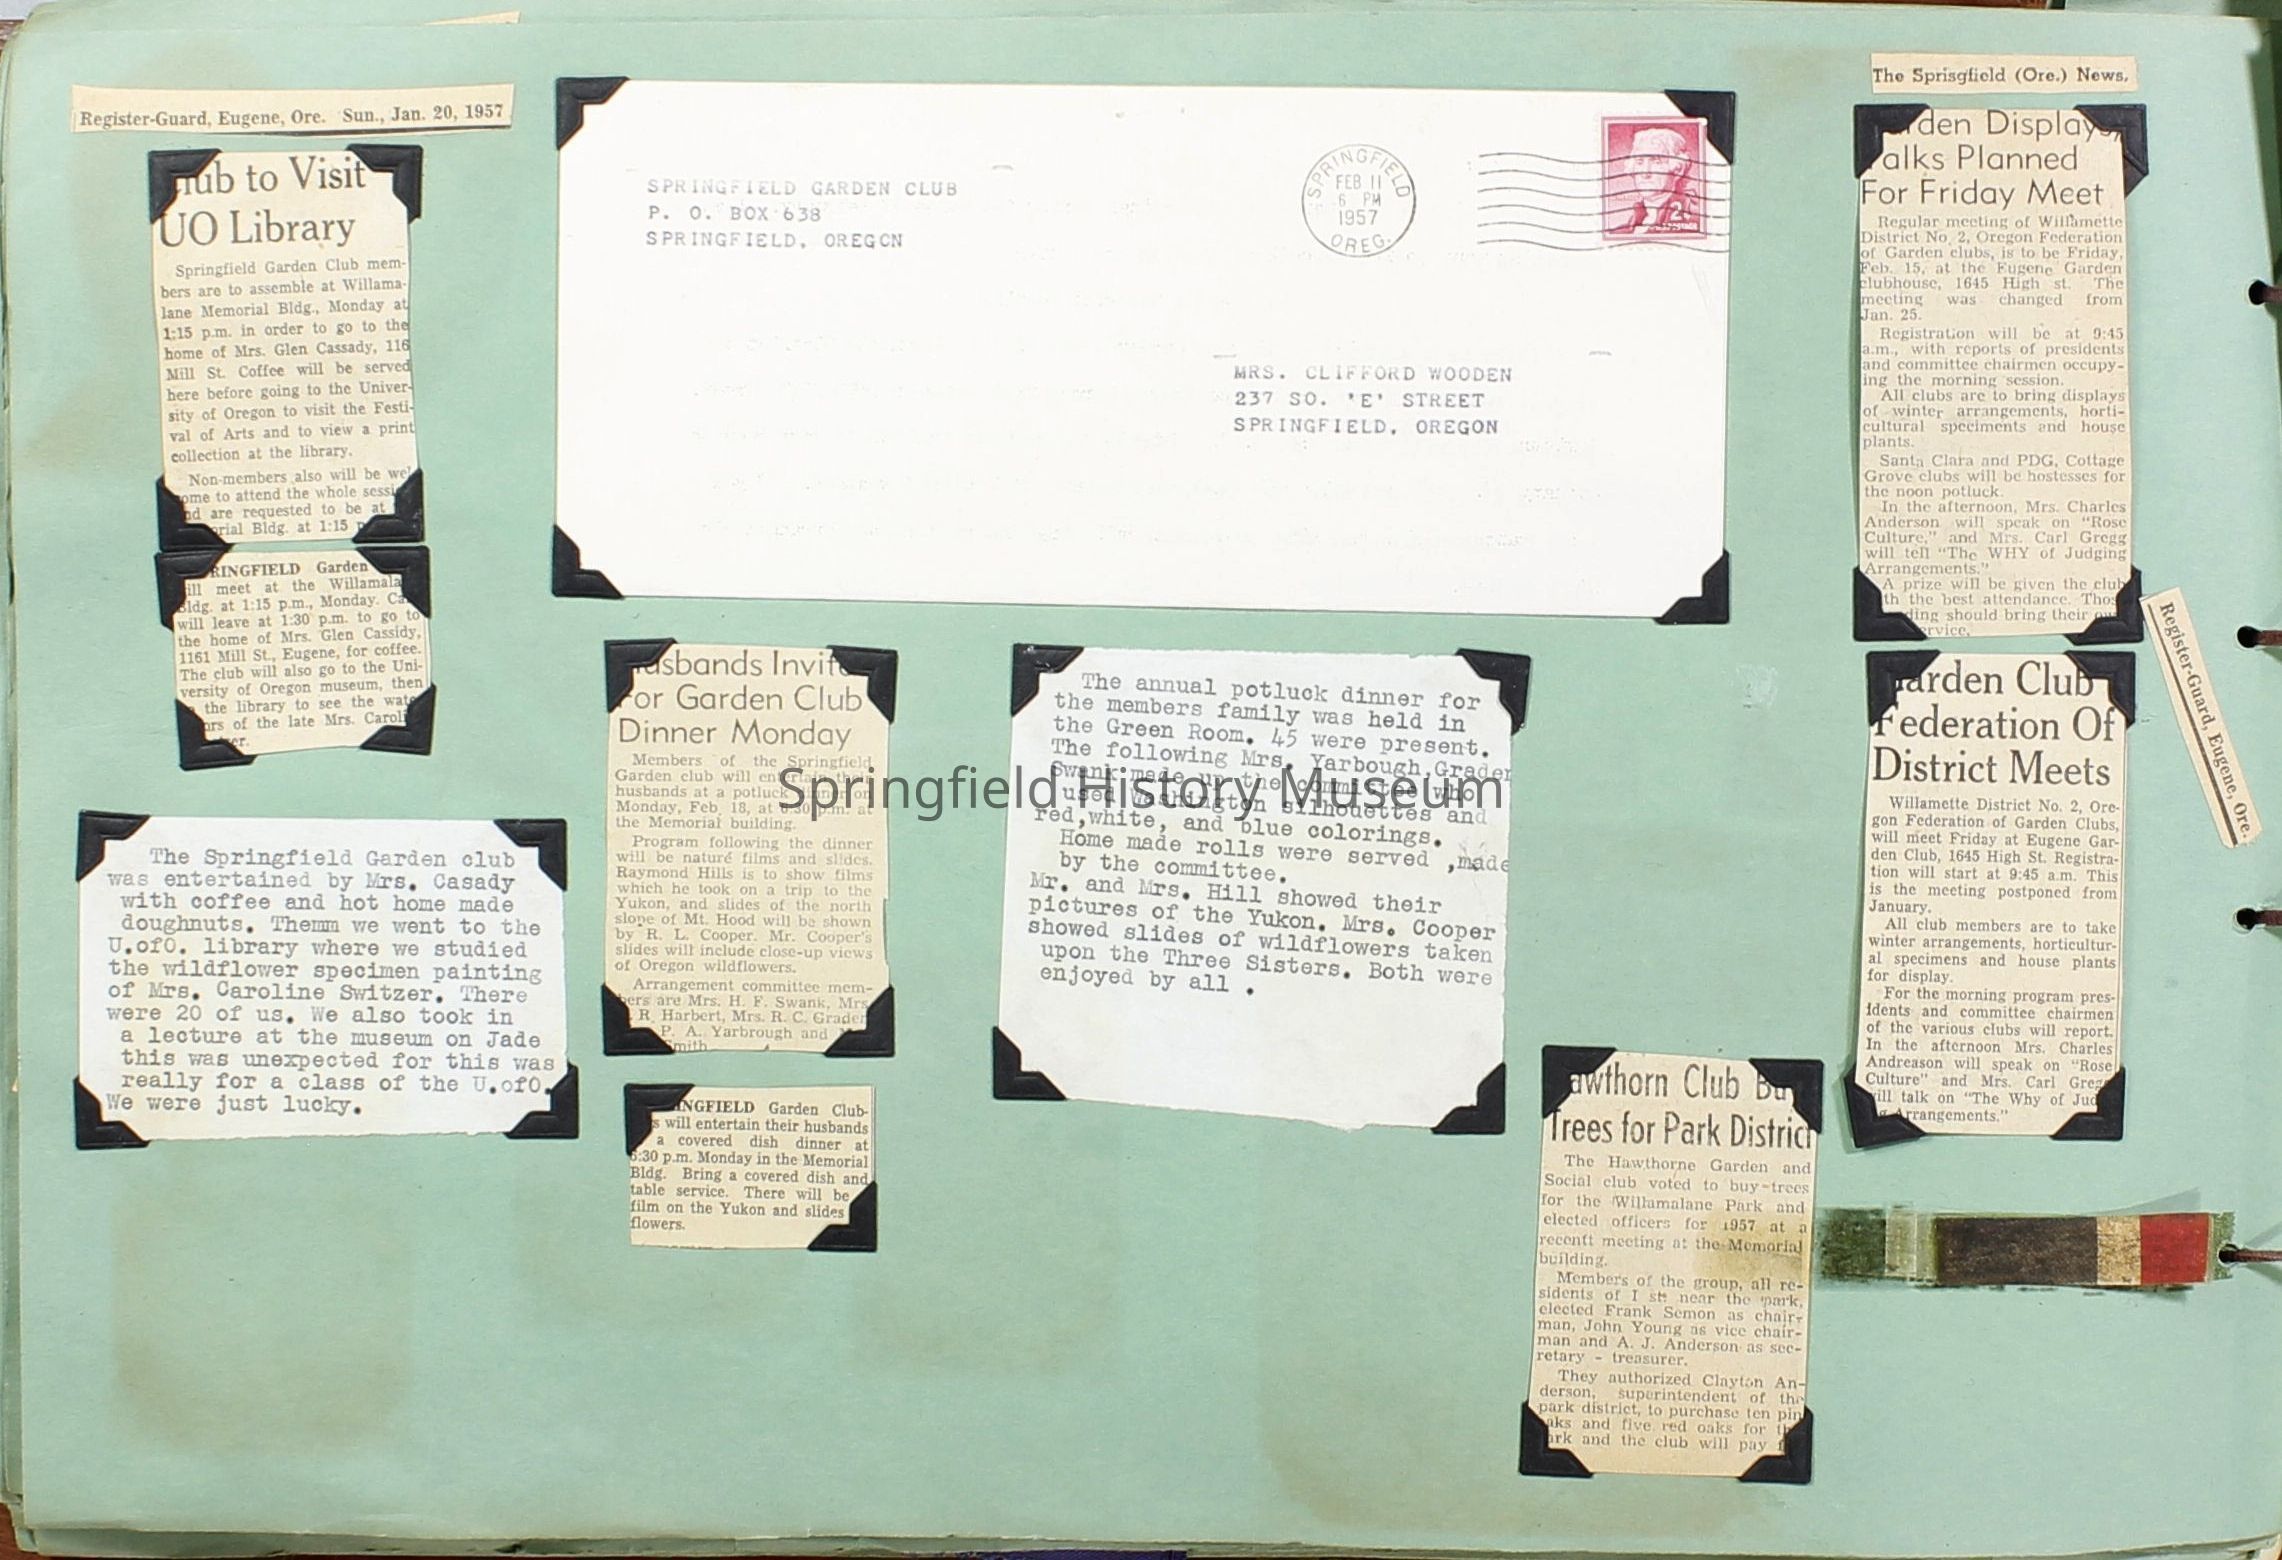 Register-Guard, Eugene, Ore. Sun., Jan. 20, 1957
lub to Visit
UO Library
Springfield Garden Club mem-
bers are to assemble at Willama-
lane Memorial Bldg., Monday at
1:15 p.m. in order to go to the
home of Mrs. Glen Cassady, 116
Mill St. Coffee will be served
here before going to the Univer-
sity of Oregon to visit the Festi-
val of Arts and to view a print
collection at the library.
Non-members also will be wel
ome to attend the whole sessi
nd are requested to be at
orial Bldg. at 1:15 p
RINGFIELD Garden
ill meet at the Willamala
Bldg. at 1:15 p.m., Monday. Ca
will leave at 1:30 p.m. to go to
the home of Mrs. Glen Cassidy,
1161 Mill St., Eugene, for coffee.
The club will also go to the Uni-
versity of Oregon museum, then
the library to see the wate
ors of the late Mrs. Caroli
zer.
The Springfield Garden club
was entertained by Mrs. Casady
with coffee and hot home made
doughnuts. Themm we went to the
U.ofO. library where we studied
the wildflower specimen painting
of Mrs. Caroline Switzer. There
were 20 of us. We also took in
a lecture at the museum on Jade
this was unexpected for this was
really for a class of the U.ofO.
We were just lucky.
SPRINGFIELD GARDEN CLUB
P. O. BOX 638
SPRINGFIELD, OREGON
SPRINGFIELD
FEB 11
6 PM
1957
OREG.
2¢
MRS. CLIFFORD WOODEN
237 SO. 'E' STREET
SPRINGFIELD, OREGON
usbands Invite
For Garden Club
Dinner Monday
Members of the Springfield
Garden club will entertain their
husbands at a potluck dinner on
Monday, Feb. 18, at 6:30 p.m. at
the Memorial building.
Program following the dinner
will be nature films and slides.
Raymond Hills is to show films
which he took on a trip to the
Yukon, and slides of the north
slope of Mt. Hood will be shown
by R. L. Cooper. Mr. Cooper's
slides will include close-up views
of Oregon wildflowers.
Arrangement committee mem-
bers are Mrs. H. F. Swank, Mrs
R. Harbert, Mrs. R. C. Grader
P. A. Yarbrough and M
Smith
INGFIELD Garden Club-
s will entertain their husbands
a covered dish dinner at
6:30 p.m. Monday in the Memorial
Bldg. Bring a covered dish and
table service. There will be
film on the Yukon and slides
flowers.
The annual potluck dinner for
the members family was held in
the Green Room. 45 were present.
The following Mrs. Yarbough,Grader
Swank made up the committee who
used Washington silhouettes and
red,white, and blue colorings.
Home made rolls were served ,made
by the committee.
Mr. and Mrs. Hill showed their
pictures of the Yukon. Mrs. Cooper
showed slides of wildflowers taken
upon the Three Sisters. Both were
enjoyed by all .
Springfield History Museum
The Sprisgfield (Ore.) News,
rden Displays,
alks Planned
For Friday Meet
Regular meeting of Willamette
District No. 2, Oregon Federation
of Garden clubs, is to be Friday,
Feb. 15, at the Eugene Garden
clubhouse, 1645 High st. The
meeting was changed from
Jan. 25.
Registration will be at 9:45
a.m., with reports of presidents
and committee chairmen occupy-
ing the morning session.
All clubs are to bring displays
of winter arrangements, horti-
cultural speciments and house
plants.
Santa Clara and PDG, Cottage
Grove clubs will be hostesses for
the noon potluck.
In the afternoon, Mrs. Charles
Anderson will speak on "Rose
Culture," and Mrs. Carl Gregg
will tell "The WHY of Judging
Arrangements."
A prize will be given the club
th the best attendance. Thos
ding should bring their ow
ervice.
Register-Guard, Eugene, Ore.
arden Club
Federation Of
District Meets
Willamette District No. 2, Ore-
gon Federation of Garden Clubs,
will meet Friday at Eugene Gar-
den Club, 1645 High St. Registra-
tion will start at 9:45 a.m. This
is the meeting postponed from
January.
All club members are to take
winter arrangements, horticultur-
al specimens and house plants
for display.
For the morning program pres-
idents and committee chairmen
of the various clubs will report.
In the afternoon Mrs. Charles
Andreason will speak on "Rose
Culture" and Mrs. Carl Greg
ill talk on "The Why of Jud
g Arrangements."
awthorn Club Bu
Trees for Park District
The Hawthorne Garden and
Social club voted to buy trees
for the Willamalane Park and
elected officers for 1957 at a
recent meeting at the Memorial
building.
Members of the group, all re-
sidents of I st. near the park,
elected Frank Semon as chair-
man, John Young as vice chair-
man and A. J. Anderson as sec-
retary - treasurer.
They authorized Clayton An-
derson, superintendent of the
park district, to purchase ten pin
aks and five red oaks for th
ark and the club will pay f